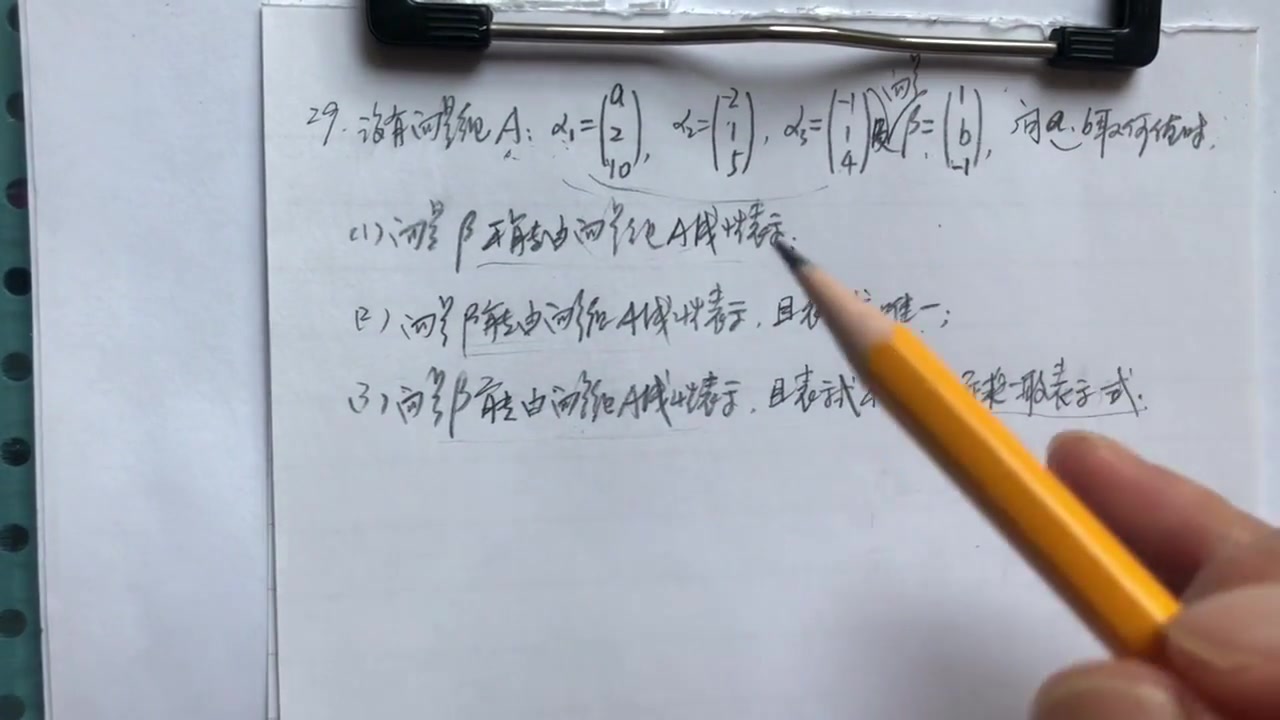 29. 设有向量组A: α₁=(a 2 10), α₂=(-2 1 5), α₃=(-1 1 4)及向量β=(1 b -1), 问a、b取何值时,
(1) 向量β不能由向量组A线性表示;
(2) 向量β能由向量组A线性表示, 且表 唯一;
(3) 向量β能由向量组A线性表示, 且表示式 求一般表示式.